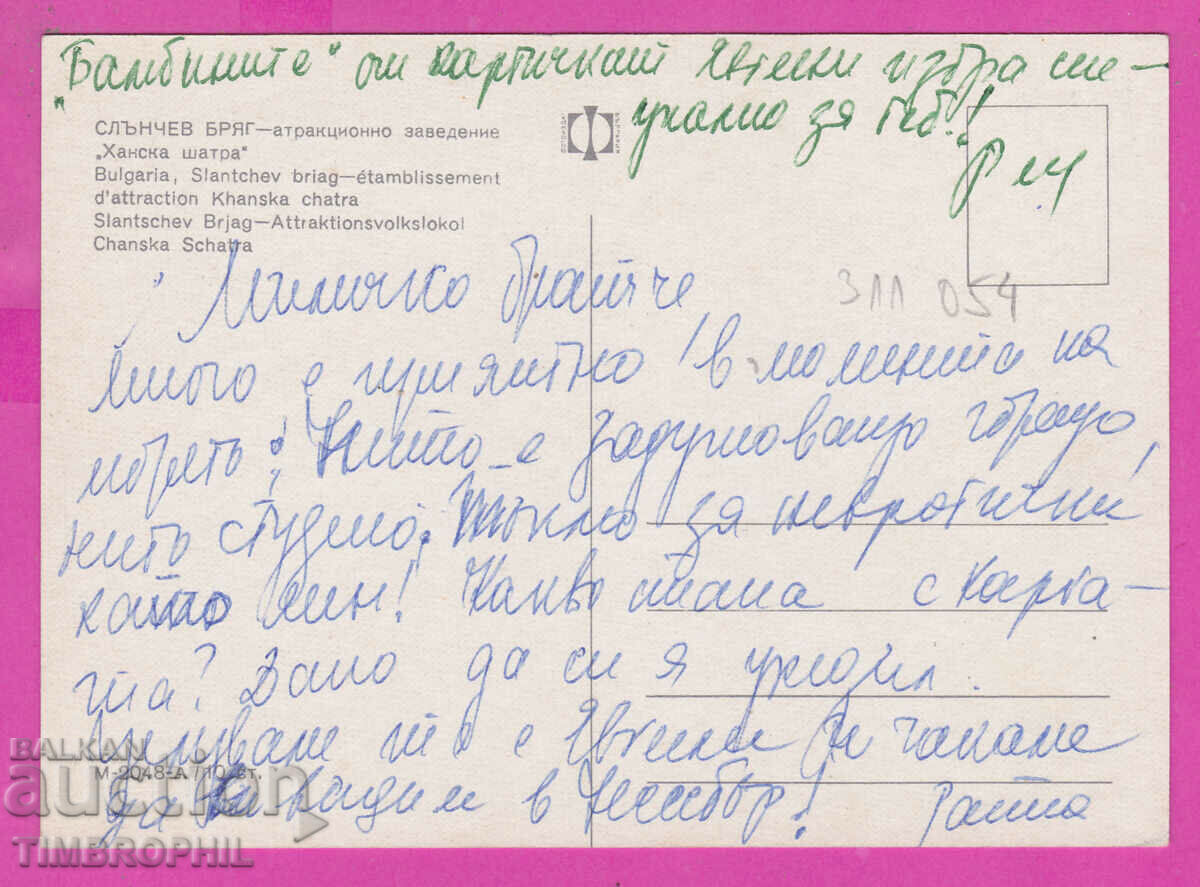 „Бамбините" от картичкат Евгени избра спе-
циално за теб!
СЛЪНЧЕВ БРЯГ—атракционно заведение
„Ханска шатра"
Bulgaria, Slantchev briag—étamblissement
d'attraction Khanska chatra
Slantschev Brjag—Attraktionsvolkslokol
Chanska Schatra
311 054
Миличко братче
Много е приятно в момента на
морето! Нито е задушоващо горещо,
нито студено. Тъкмо за невротички
като мен! Какво стана с карта-
та? Дано да си я уредил.
Целувам те с Евгени и чакаме
да ви видим в Несебър!
М-2048-А /10 ст.
BALKAN
auction
TIMBROPHIL